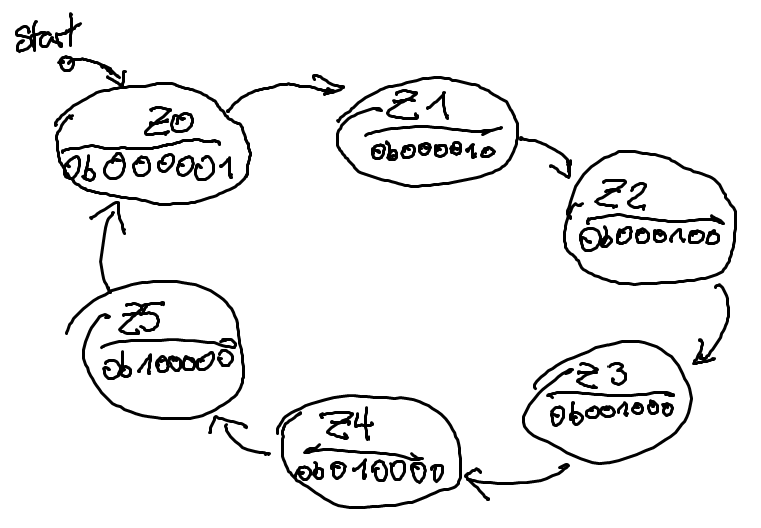 Start
Z0
0b000001
Z1
0b000010
Z2
0b000100
Z3
0b001000
Z4
0b010000
Z5
0b100000